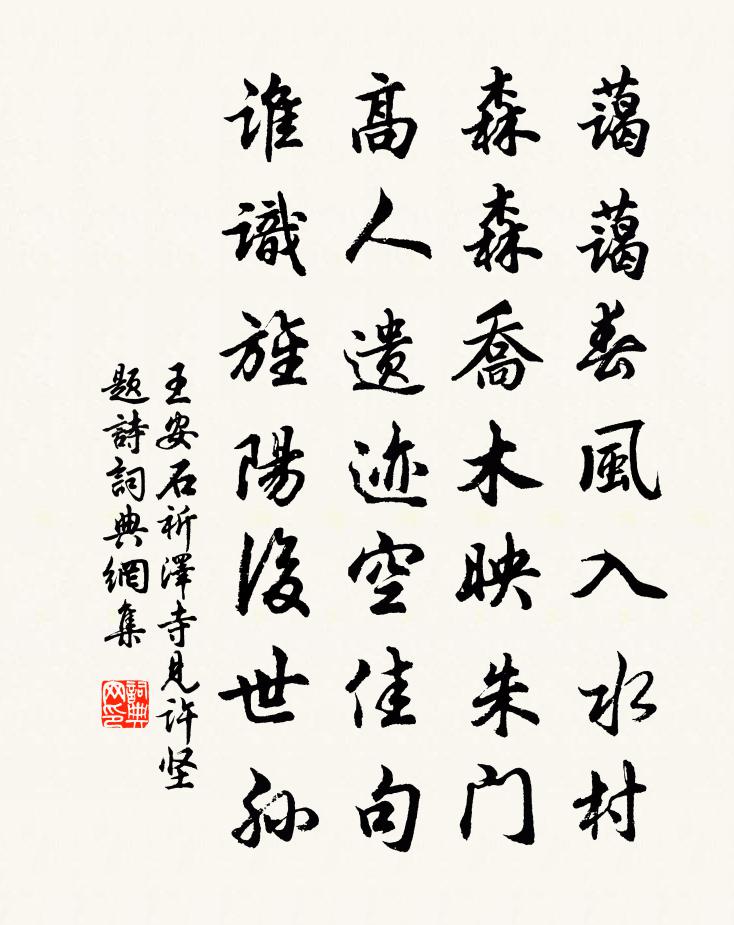 藹藹春風入水村
森森喬木映朱門
高人遺迹空佳句
誰識旌陽後世孫
王安石祈澤寺見許坚
题詩詞典網集
詞典网印